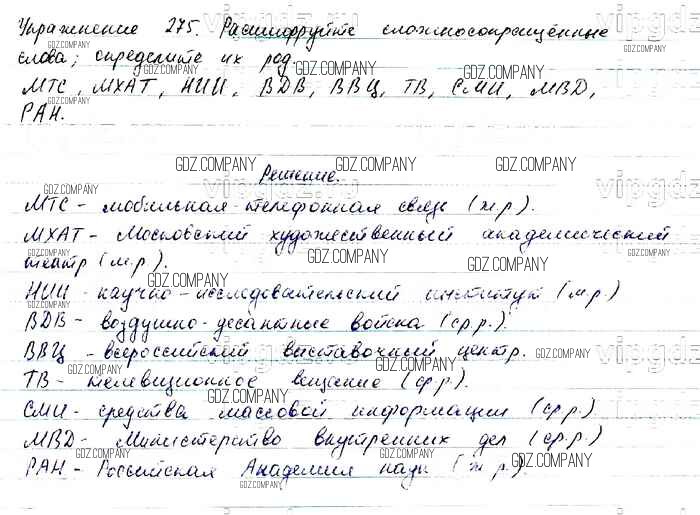 Упражнение 275. Расшифруйте сложносокращённые
слова; определите их род.
МТС, МХАТ, НИИ, ВДВ, ВВЦ, ТВ, СМИ, МВД,
РАН.
Решение.
МТС - мобильная телефонная связь (ж.р.).
МХАТ - Московский художественный академический
театр (м.р.).
НИИ - научно-исследовательский институт (м.р.)
ВДВ - воздушно-десантные войска (ср.р.).
ВВЦ - всероссийский выставочный центр.
ТВ - телевиционное вещание (ср.р.).
СМИ - средства массовой информации (ср.р.)
МВД - Министерство внутренних дел (ср.р.)
РАН - Российская Академия наук (ж.р.).
GDZ.COMPANY
vipgdz.ru